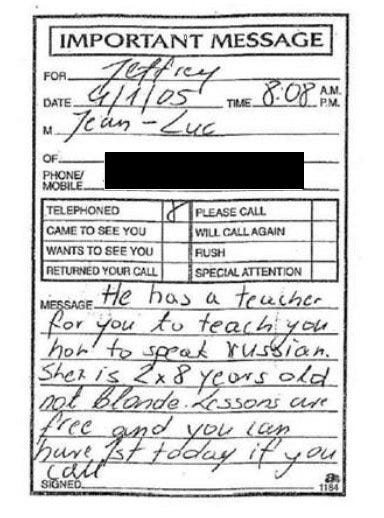 IMPORTANT MESSAGE
FOR Jeffrey
DATE 4/1/05 TIME 8:08 A.M. P.M.
M Jean-Luc
OF
PHONE/
MOBILE
TELEPHONED PLEASE CALL
CAME TO SEE YOU WILL CALL AGAIN
WANTS TO SEE YOU RUSH
RETURNED YOUR CALL SPECIAL ATTENTION
MESSAGE He has a teacher
for you to teach you
how to speak russian.
She is 2x8 years old
not blonde. Lessons are
free and you can
have 1st today if you
call
SIGNED
1184